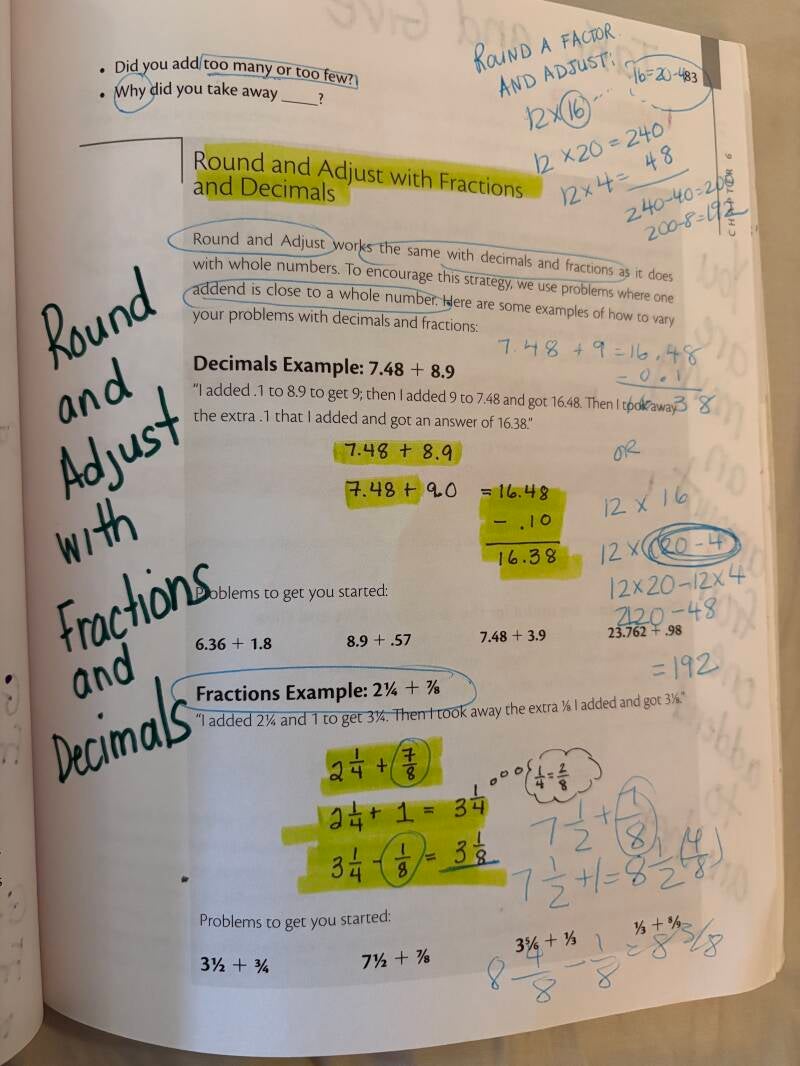 • Did you add too many or too few?
• Why did you take away ____?
ROUND A FACTOR
AND ADJUST:
16=20-4
83
12×16
12×20=240
12×4= 48
240-40=200
200-8=192
Round and Adjust with Fractions
and Decimals
Round and Adjust works the same with decimals and fractions as it does
with whole numbers. To encourage this strategy, we use problems where one
addend is close to a whole number. Here are some examples of how to vary
your problems with decimals and fractions:
7.48 + 9 = 16.48
- 0.1
Decimals Example: 7.48 + 8.9
"I added .1 to 8.9 to get 9; then I added 9 to 7.48 and got 16.48. Then I took away
the extra .1 that I added and got an answer of 16.38."
7.48 + 8.9
7.48 + 9.0 = 16.48
- .10
16.38
OR
12 × 16
12×(20-4)
12×20-12×4
-48
=192
Round
and
Adjust
with
Fractions
and
Decimals
Problems to get you started:
6.36 + 1.8
8.9 + .57
7.48 + 3.9
23.762 + .98
Fractions Example: 2¼ + ⅞
"I added 2¼ and 1 to get 3¼. Then I took away the extra ⅛ I added and got 3⅛."
2 1/4 + 7/8
1/4 = 2/8
2 1/4 + 1 = 3 1/4
3 1/4 - 1/8 = 3 1/8
7 1/2 + 1/8
7 1/2 + 1 = 8 1/2 (4/8)
8 4/8 - 1/8 = 8 3/8
Problems to get you started:
3½ + ¾
7½ + ⅞
3⅚ + ⅓
⅓ + 8/9